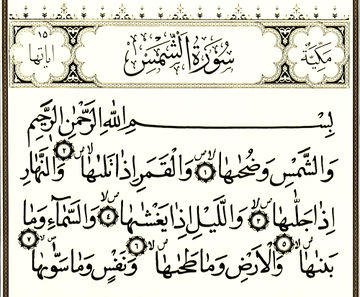 مكية
سورة الشمس
١٥ اياتها
بِسْمِ اللهِ الرَّحْمٰنِ الرَّحِيْمِ
وَالشَّمْسِ وَضُحٰىهَا ١ وَالْقَمَرِ اِذَا تَلٰىهَا ٢ وَالنَّهَارِ
اِذَا جَلّٰىهَا ٣ وَاللَّيْلِ اِذَا يَغْشٰىهَا ٤ وَالسَّمَآءِ وَمَا
بَنٰىهَا ٥ وَالْاَرْضِ وَمَا طَحٰىهَا ٦ وَنَفْسٍ وَمَا سَوّٰىهَا ٧